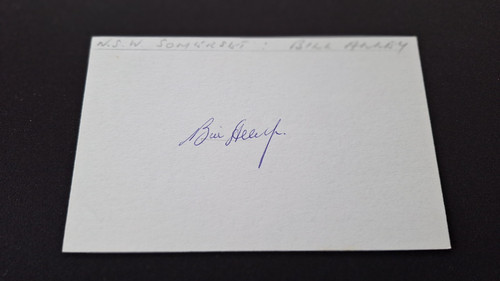 N.S.W SOMERSET : BILL ALLEY
Bill Alley.